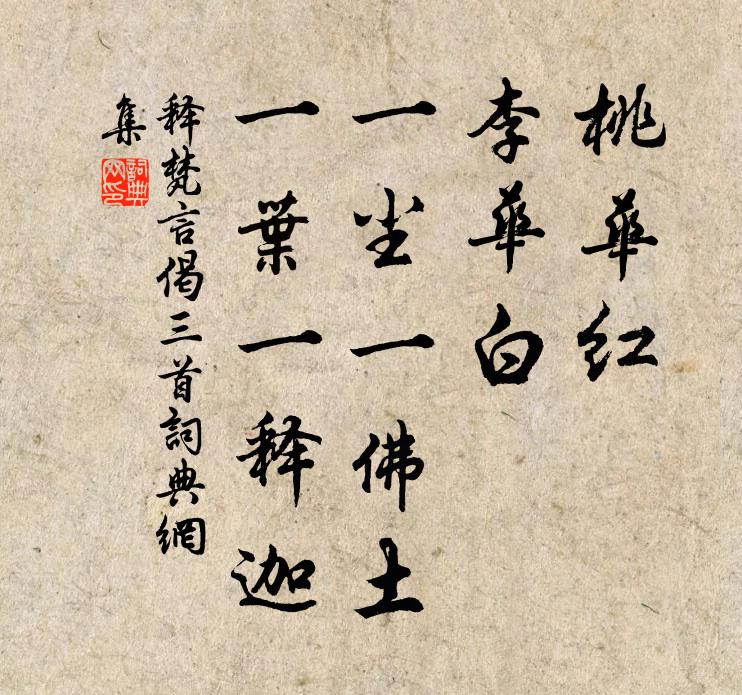 桃華紅
李華白
一尘一佛土
一葉一释迦
释梵言偈三首詞典網
集
詞典網印